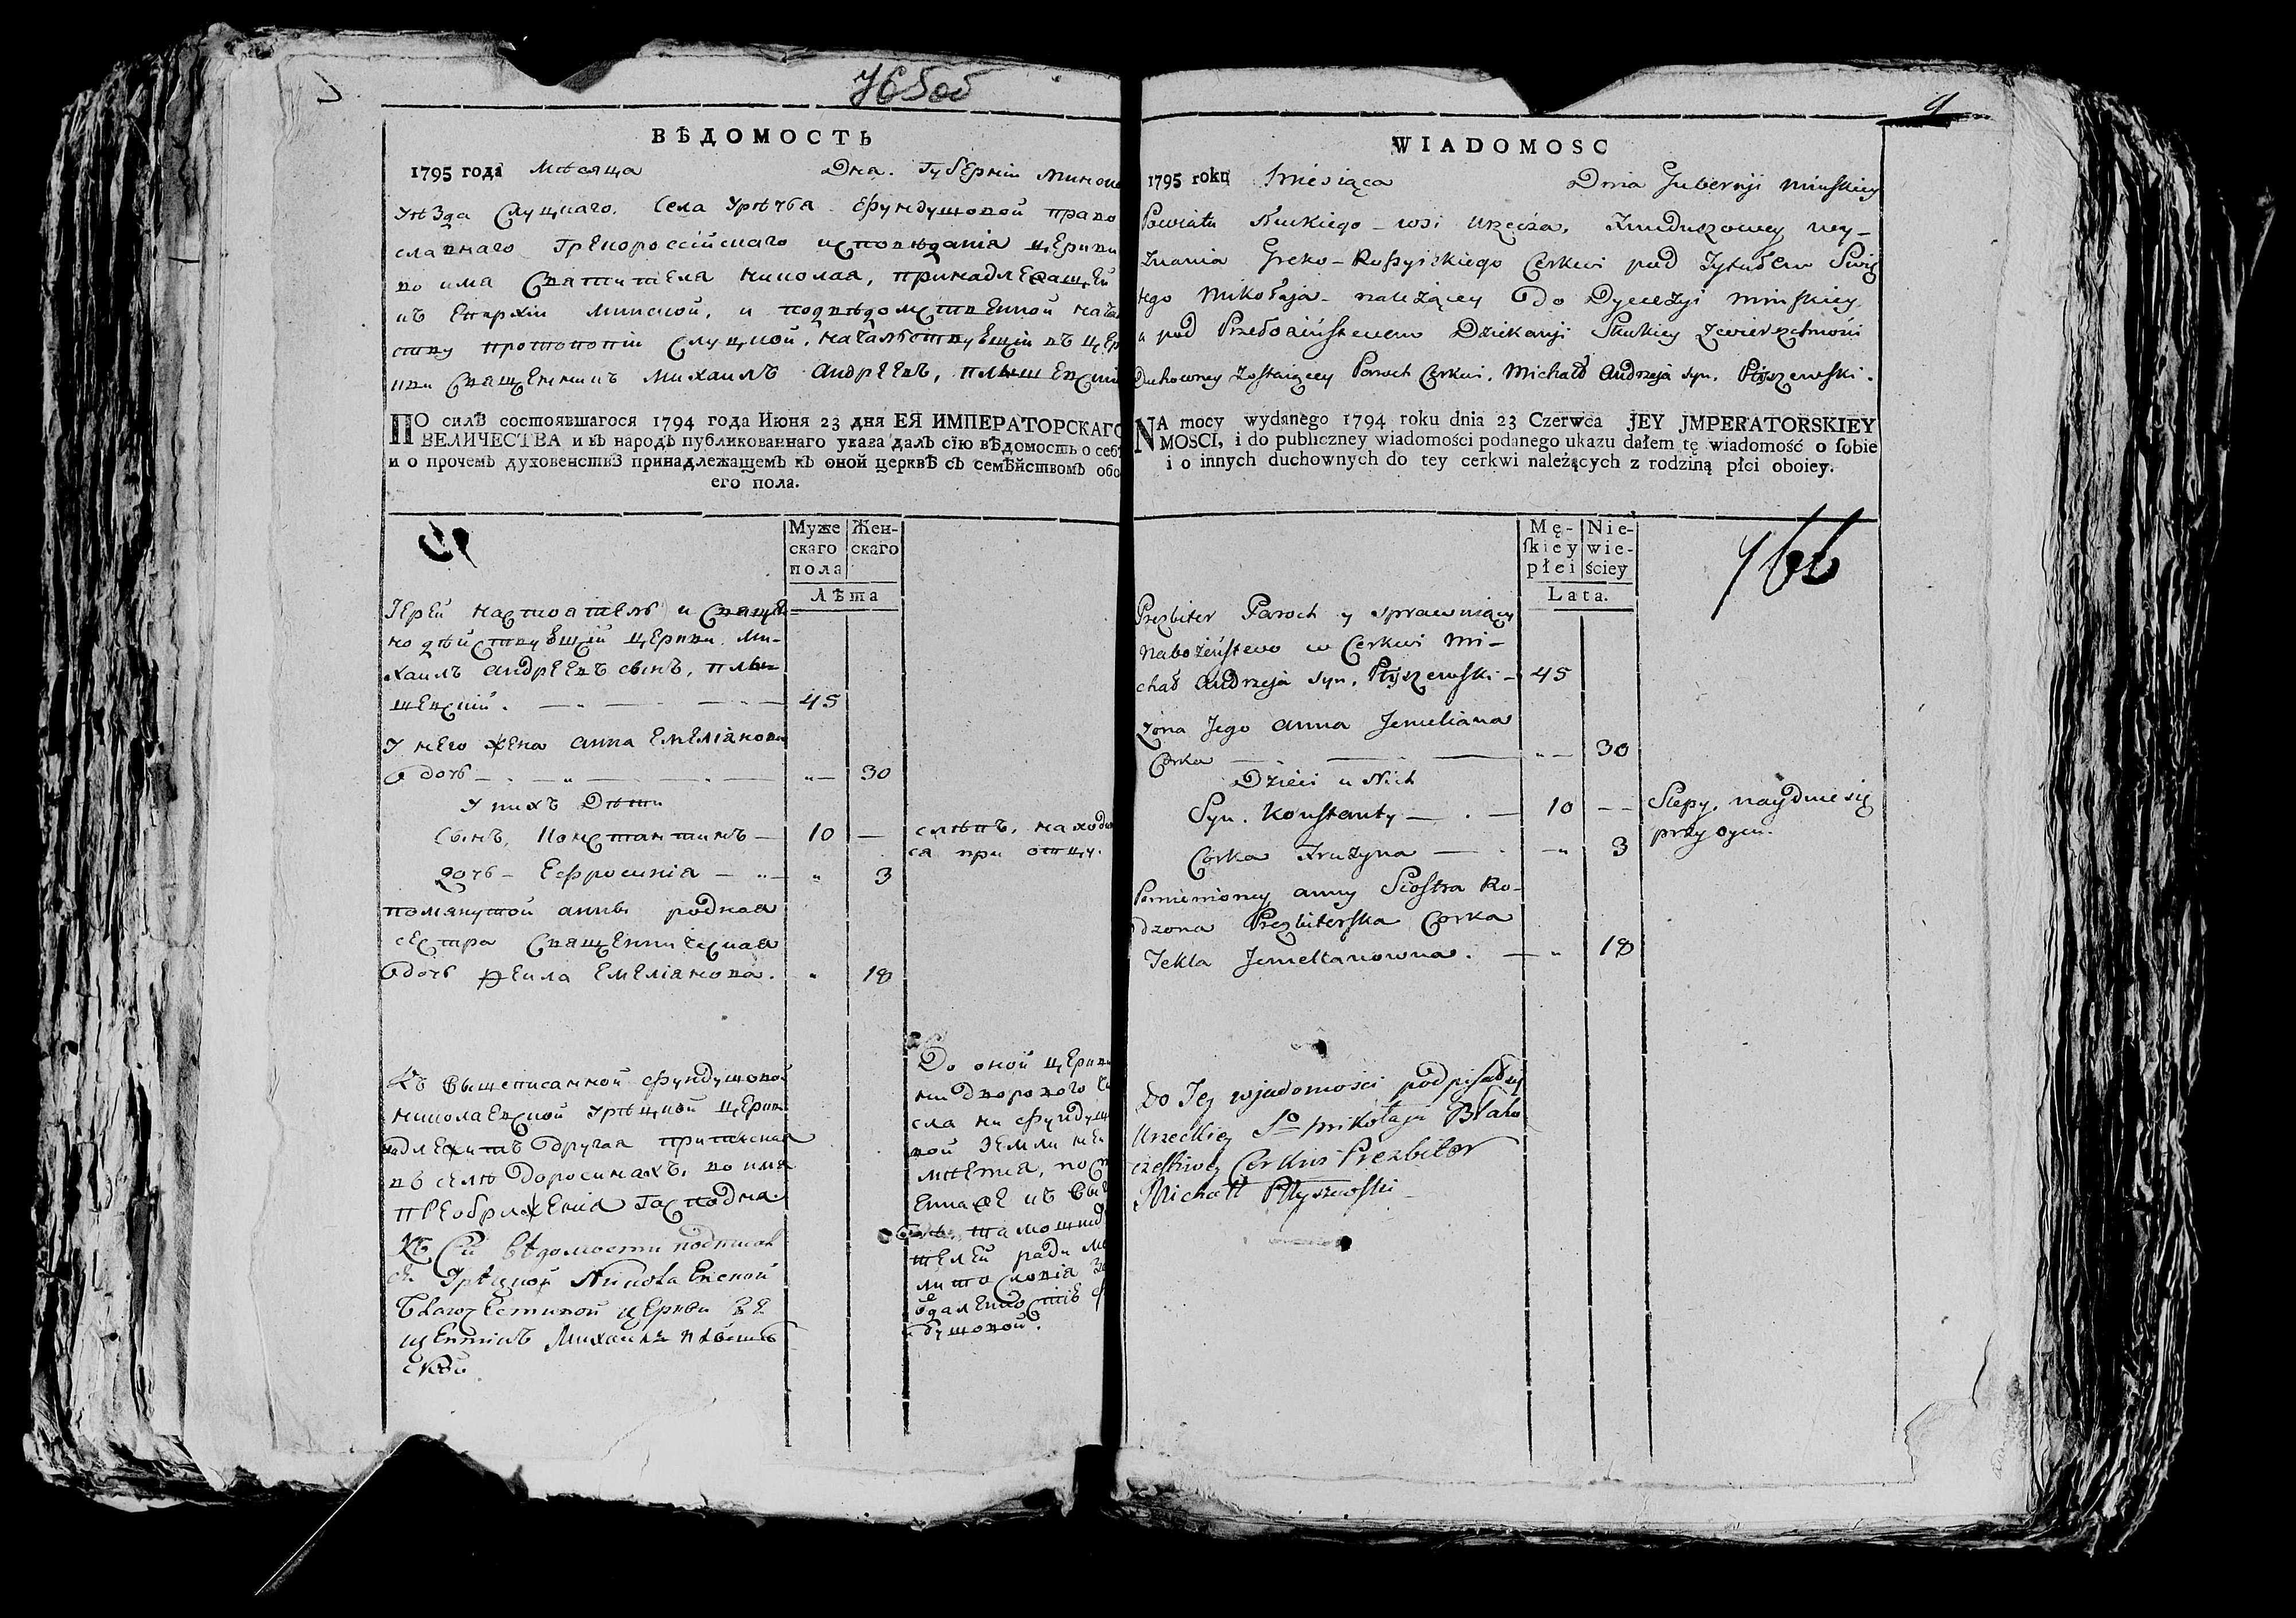 765об
ВѢДОМОСТЬ
1795 года Мѣсяца Дна. Губернiи Минско
Уѣзда Слуцкаго. Села Урѣчья. Фундушовой право
славнаго Грекороссiйскаго исповѣданiя церкви
во имя Святителя Николая, принадлежащей
къ Епархiи Минской, и подвѣдомственной нача
ству протопопiи Слуцкой, началствующiй въ цер
кви Священникъ Михаилъ Андреевъ,
ПО силѣ состоявшагося 1794 года Июня 23 дня ЕЯ ИМПЕРАТОРСКАГО
ВЕЛИЧЕСТВА и въ народъ публикованнаго указа далъ сїю вѣдомость о себѣ
и о прочемъ духовенствѣ принадлежащемъ къ оной церквѣ съ семѣйствомъ обо
его пола.
Муже Жен-
скаго скаго
пола
Лѣта
Iерей настоятель и свяще
нодѣйствующiй церкви. Ми-
хаилъ Андреевъ сынъ,
45
У него жена Анна Емелiанова
дочь 30
У нихъ Дѣти
Сынъ, Константинъ 10 слѣпъ, находи
ся при отцу.
дочь Ефросинiя 3
помянутой Анны родная
сестра Священническая
дочь Фекла Емелiанова. 18
Къ вышеписанной фундушовой
николаевской Урѣцкой церкви
надлежитъ другая приписная
въ селѣ Доросинахъ, во имя
преображенiя Господня.
До оной церкви
ни дворового чи
сла ни фундуш
вой земли не
Къ Сей вѣдомости подписал
ся Урѣцкой Николаевской
Благочестивой церкви
Михаилъ
ской
WIADOMOSC
1795 roku Miesiąca Dnia Jubernji Minskiey
Powiatu Słuckiego wsi Urzecża, Funduszowey wy-
znania Greko-Rossyiskiego Cerkwi pod Tytułem Swię
tego Mikołaja należącey do Dyecezyi Minskiey,
a pod Przełożeństwem Dziekanji Słuckiey zwierzchności
Duchowney zostaiącey Paroch Cerkwi. Michał Andrzeja syn. Płyszewski.
NA mocy wydanego 1794 roku dnia 23 Czerwca JEY JMPERATORSKIEY
MOSCI, i do publiczney wiadomości podanego ukazu dałem tę wiadomość o sobie
i o innych duchownych do tey cerkwi należących z rodziną płci oboiey.
Mę- Nie-
skiey wie-
płei ściey
Lata.
766
Prezbiter Paroch y sprawuiący
Nabożeństwo w Cerkwi Mi-
chał Andrzeja syn. Płyszewski 45
Żona Jego Anna Jemeliana
Corka 30
Dzieci u Nich
Syn. Konstanty 10 Slepy, nayduie się
przy oycu.
Corka Fruzyna 3
Pomienioney Anny Siostra Ro-
dzona Prezbiterska Corka
Tekla Jemelianowna. 18
Do Tey wjadomości podpisałsię
Urzeckiey So Mikołaja Błaho
czestiwey Cerkwi Prezbiter
Michał Płyszewski